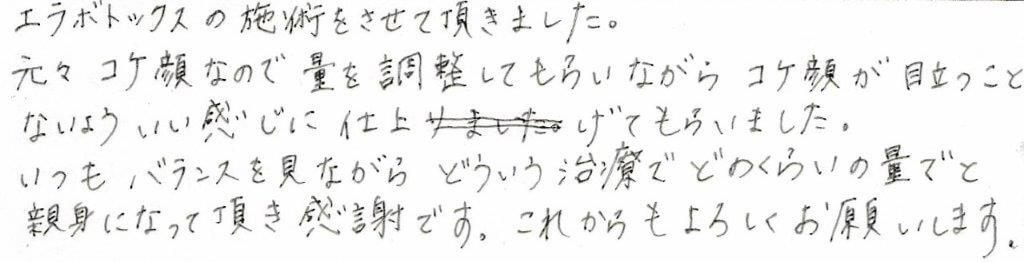 エラボトックスの施術をさせて頂きました。
元々コケ顔なので量を調整してもらいながらコケ顔が目立つこと
ないよういい感じに仕上げてもらいました。
いつもバランスを見ながらどういう治療でどのくらいの量でと
親身になって頂き感謝です。これからもよろしくお願いします。